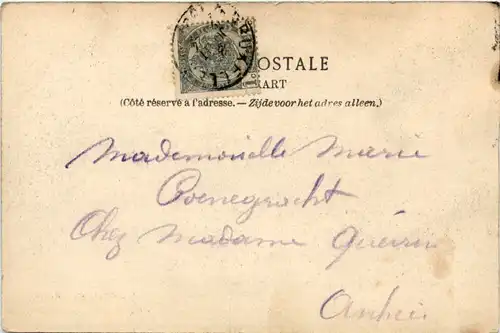 BRUXELLES
POSTALE
KART
(Côté réservé à l'adresse. — Zijde voor het adres alleen.)
Mademoiselle Marie
Coenegracht
Chez Madame Guérin